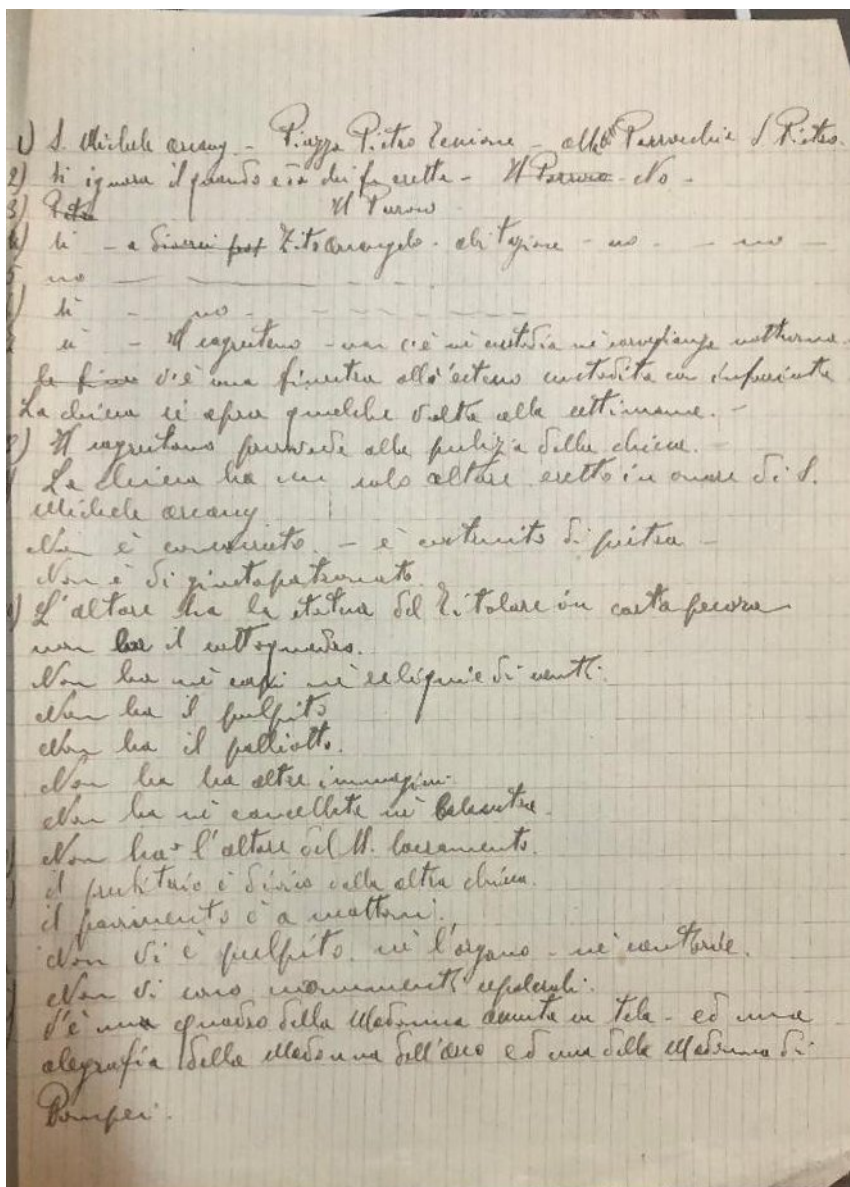 1) S. Michele arcang - Piazza Pietro - alla Parrocchia S. Pietro.
2) Si ignora il quando e da chi fu eretta - Il Parroco - No -
3) Il Parroco
4) Si - a diversi Zito Arcangelo - abitazione - no - - no -
5 no
) Si - no -
si - Il sagrestano - non c'è nè custodia nè sorveglianza notturna.
v'è una finestra all'esterno custodita con inferriata
La chiesa si apre qualche volta alla settimana. -
8) Il sagrestano provvede alla pulizia della chiesa.
La chiesa ha un solo altare eretto in onore di S.
Michele arcang
Non è consacrato. - è costruito di pietra -
Non è di giuspatronato.
) L'altare ha la statua del Titolare in cartapecora
non ha il sottoquadro.
Non ha nè corpi nè reliquie di santi.
Non ha il pulpito
Non ha il palliotto.
Non ha ha altre immagini.
Non ha nè cancellata nè balaustra.
Non ha l'altare del SS. Sacramento.
il presbiterio è diviso dalla altra chiesa.
il pavimento è a mattoni.
Non vi è pulpito nè l'organo - nè cantorie.
Non vi sono monumenti sepolcrali.
V'è un quadro della Madonna assunta in tela - ed una
olegrafia della Madonna dell'Arco ed una della Madonna di
Pompei.